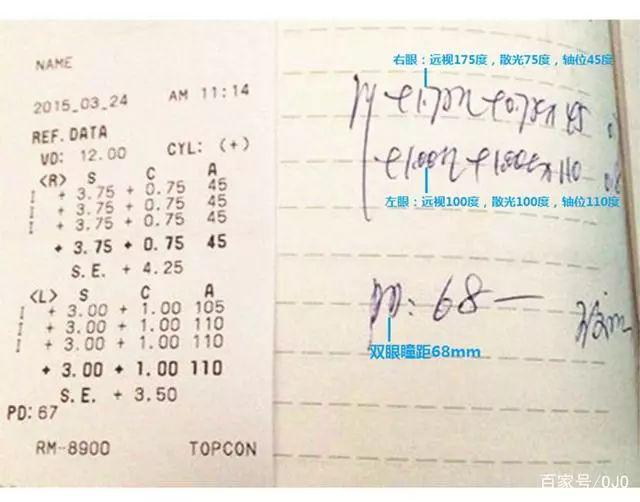 NAME
2015_03_24 AM 11:14
REF. DATA
VD: 12.00 CYL: (+)
<R> S C A
I + 3.75 + 0.75 45
I + 3.75 + 0.75 45
I + 3.75 + 0.75 45
+ 3.75 + 0.75 45
S.E. + 4.25
<L> S C A
I + 3.00 + 1.00 105
I + 3.00 + 1.00 110
I + 3.00 + 1.00 110
+ 3.00 + 1.00 110
S.E. + 3.50
PD: 67
RM-8900 TOPCON
右眼：远视175度，散光75度，轴位45度
+0.75x 45
+1.00 +1.00 x 110
左眼：远视100度，散光100度，轴位110度
PD: 68
双眼瞳距68mm
百家号/OJO